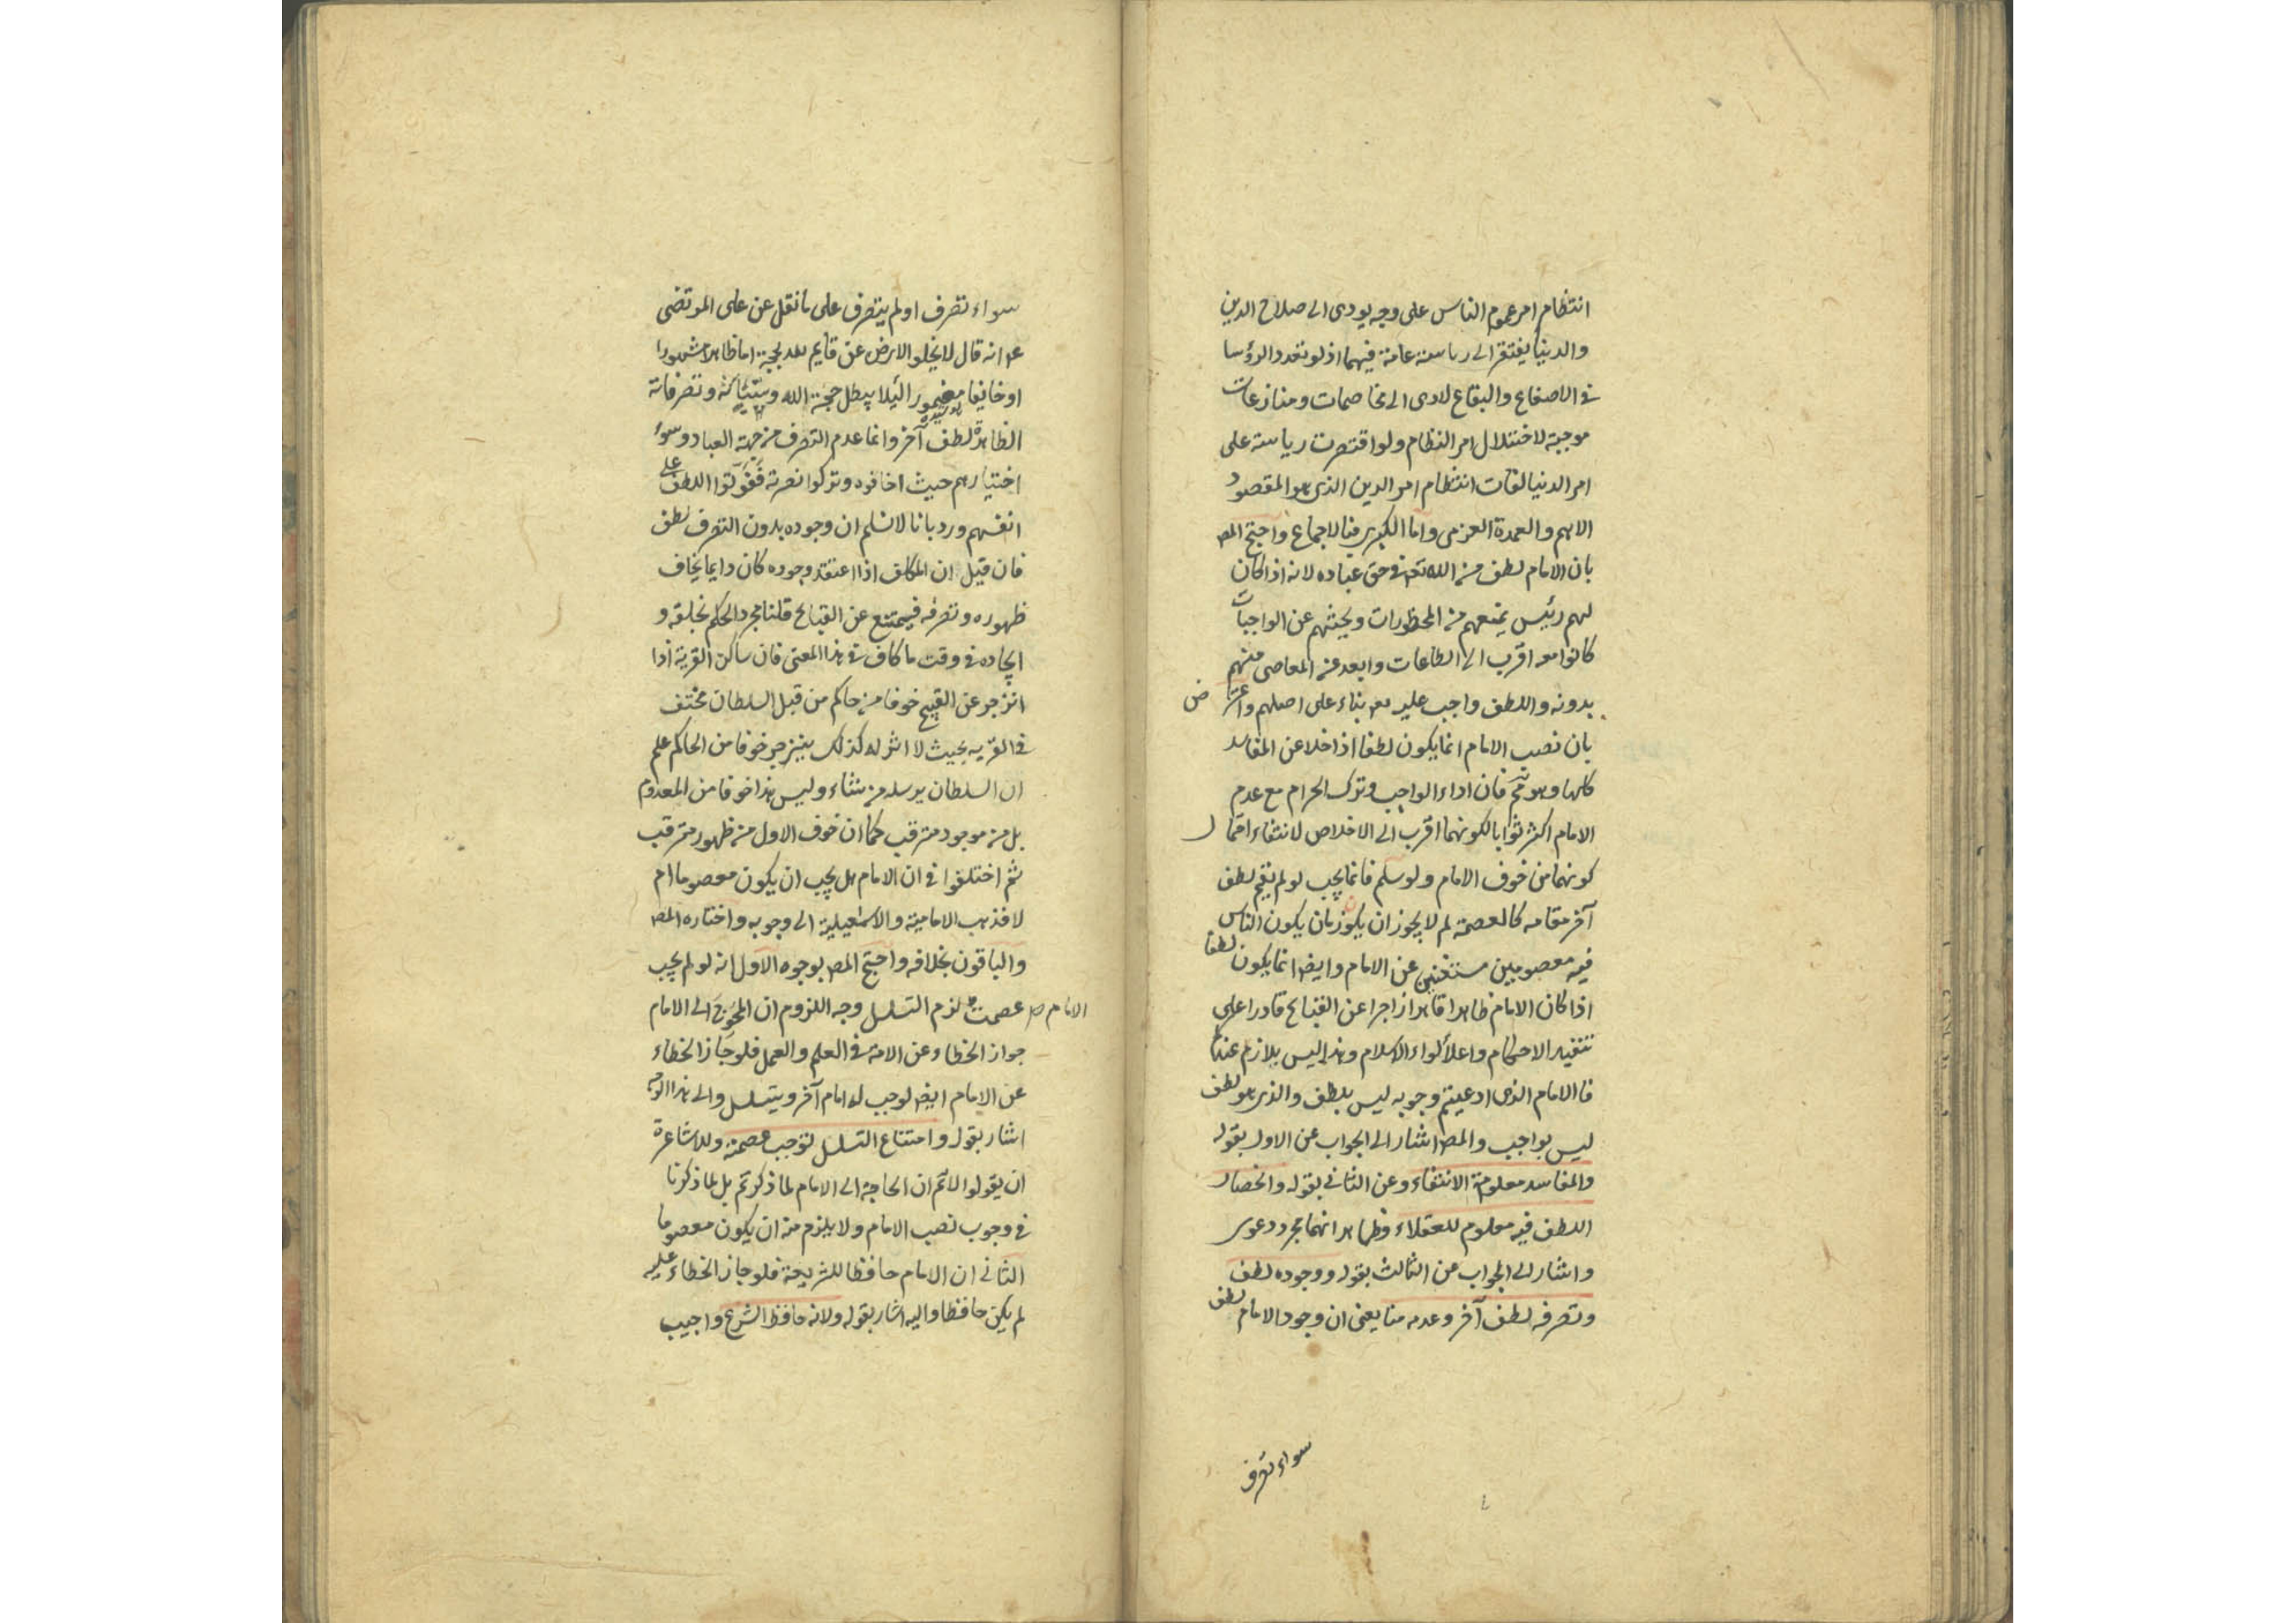 انتظام امر عموم الناس على وجه يودى الى صلاح الدين
والدنيا يفتقر الى رياسة عامة فيهما اذ لو تعدد الرؤسا
فى الاصقاع والبقاع لادى الى مخاصمات ومنازعات
موجبة لاختلال امر النظام ولو اقتصرت رياسة على
امر الدنيا لفات انتظام امر الدين الذى هو المقصود
الاهم والعمدة العزمى واما الكبرى فبالاجماع واحتج المص
بان الامام لطف من الله تع فى حق عباده لانه اذا كان
لهم رئيس يمنعهم من المحظورات ويحثهم عن الواجبات
كانوا معه اقرب الى الطاعات وابعد عن المعاصى منهم
بدونه واللطف واجب عليه تع بناء على اصلهم واعترض
بان نصب الامام انما يكون لطفا اذا خلا عن المفاسد
كلها وهو تم فان اداء الواجب وترك الحرام مع عدم
الامام اكثر ثوابا لكونهما اقرب الى الاخلاص لانتفاء احتمال
كونهما من خوف الامام ولو سلم فانما يجب لو لم يقم لطف
آخر مقامه كالعصمة لم لا يجوز ان يكون زمان يكون الناس
فيه معصومين مستغنين عن الامام وايضا انما يكون لطفا
اذا كان الامام ظاهرا قاهرا زاجرا عن القبايح قادرا على
تنفيذ الاحكام واعلاء لواء الاسلام وهذا ليس بلازم عندكم
فالامام الذى ادعيتم وجوبه ليس بلطف والذى هو لطف
ليس بواجب والمص اشار الى الجواب عن الاول بقوله
والمفاسد معلومة الانتفاء وعن الثانى بقوله وانحصار
اللطف فيه معلوم للعقلاء وظاهر انهما مجرد دعوى
واشار الى الجواب عن الثالث بقوله ووجوده لطف
وتصرفه لطف آخر وعدمه منا يعنى ان وجود الامام لطف
سواء تصرف
سواء تصرف او لم يتصرف على ما نقل عن على المرتضى
عم انه قال لا يخلو الارض عن قايم لله بحجة اما ظاهرا مشهورا
او خايفا مغمورا لئلا يبطل حجة الله وبيناته وتصرفاته
الظاهرة لطف آخر وانما عدم التصرف من جهة العباد وسوء
اختيارهم حيث اخافوه وتركوا نصرته ففوتوا اللطف على
انفسهم ورد بانا لا نسلم ان وجوده بدون التصرف لطف
فان قيل ان المكلف اذا اعتقد وجوده كان دايما يخاف
ظهوره وتصرفه فيمتنع عن القبايح قلنا مجرد الحكم بخلقه و
ايجاده فى وقت ما كاف فى هذا المعنى فان ساكن القرية اذا
انزجر عن القبيح خوفا من حاكم من قبل السلطان مختف
فى القريه بحيث لا اثر له كذلك ينزجر خوفا من الحاكم علم
ان السلطان يرسله من شاء وليس هذا خوفا من المعدوم
بل من موجود مترقب كما ان خوف الاول من ظهور مترقب
ثم اختلفوا فى ان الامام هل يجب ان يكون معصوما ام
لا فذهب الامامية والاسمعيلية الى وجوبه واختاره المص
والباقون بخلافه واحتج المص بوجوه الاول انه لو لم يجب
عصمت الامام لزم التسلسل وجه اللزوم ان المحوج الى الامام
جواز الخطاء عن الامة فى العلم والعمل فلو جاز الخطاء
عن الامام ايض لوجب له امام آخر ويتسلسل والى هذا الوجه
اشار بقوله وامتناع التسلسل توجب عصمته وللاشاعرة
ان يقولوا لا تم ان الحاجة الى الامام لما ذكرتم بل لما ذكرنا
فى وجوب نصب الامام ولا يلزم منه ان يكون معصوما
الثانى ان الامام حافظا للشريعة فلو جاز الخطاء عليه
لم يكن حافظا واليه اشار بقوله ولانه حافظ الشرع واجيب